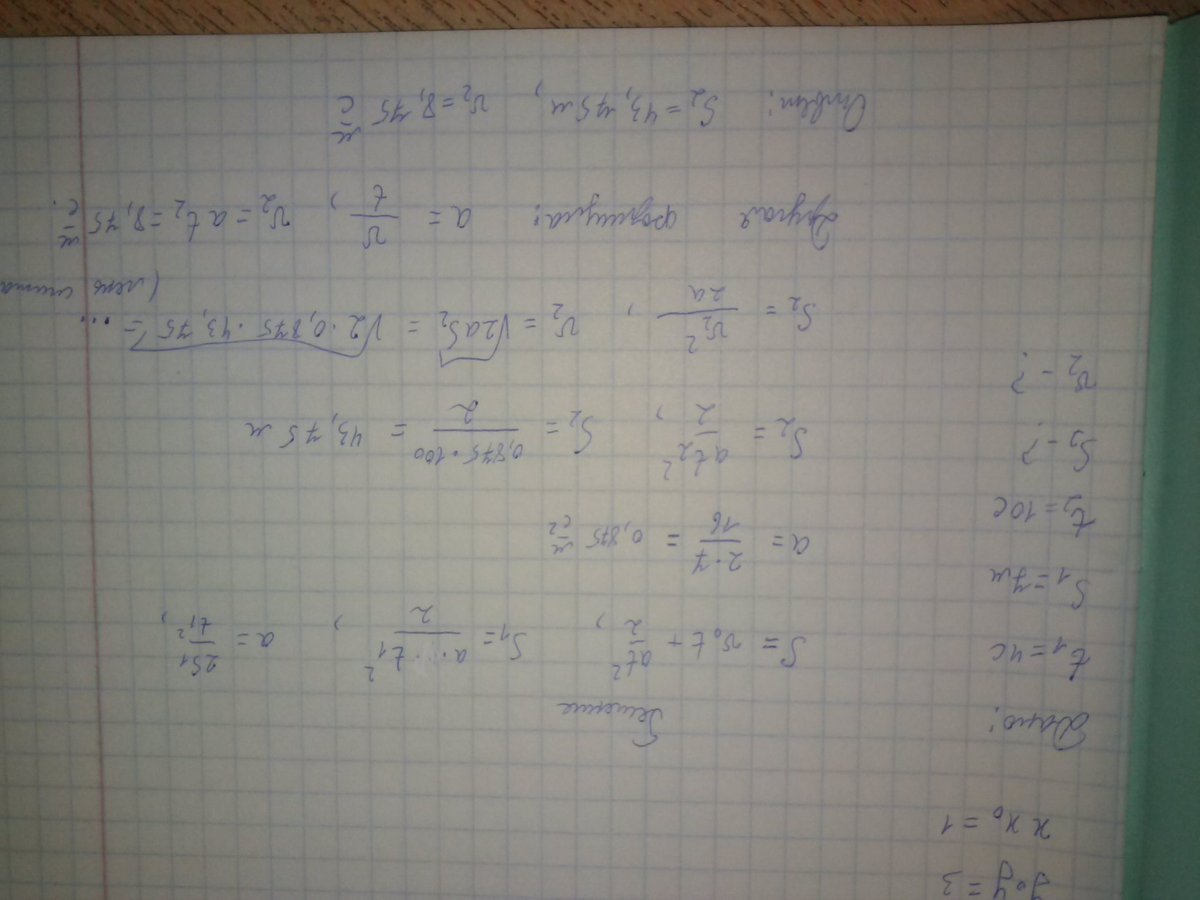 y₀y = 3
x x₀ = 1
Дано:
t₁ = 4с
S₁ = 7м
t₂ = 10с
S₂ - ?
v₂ - ?
Решение
S = v₀t + at²/2, S₁ = a · t₁²/2, a = 2S₁/t₁²,
a = 2·7/16 = 0,875 м/с²
S₂ = at₂²/2, S₂ = 0,875·100/2 = 43,75 м
S₂ = v₂²/2a, v₂ = √2aS₂ = √2·0,875·43,75 = ...
(лень
Другая формула: a = v/t, v₂ = at₂ = 8,75 м/с.
Ответ: S₂ = 43,75 м, v₂ = 8,75 м/с